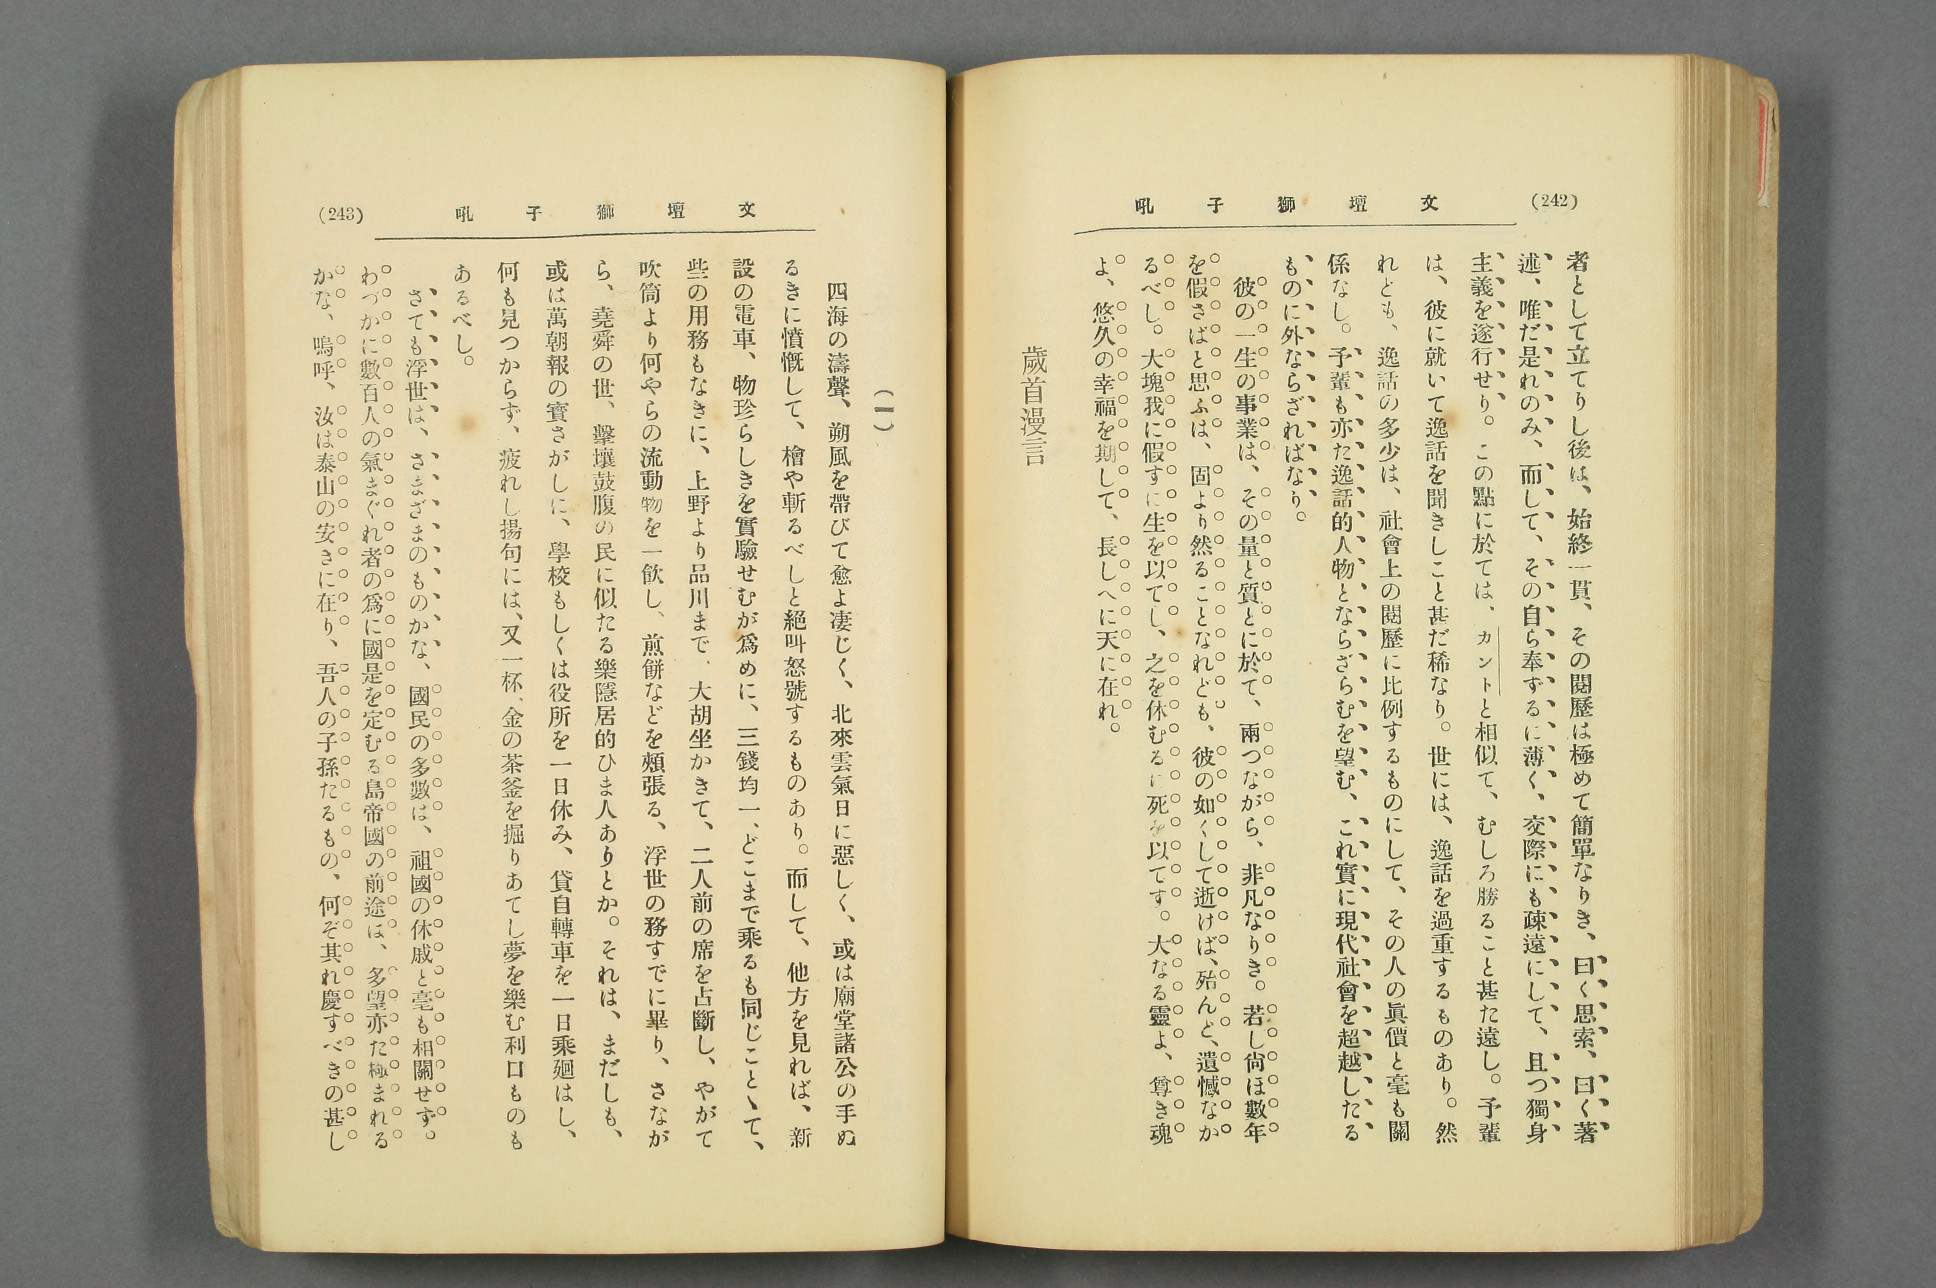 (242)
文壇獅子吼
者として立てりし後は、始終一貫、その閱歷は極めて簡單なりき、曰く思索、曰く著
述、唯だ是れのみ、而して、その自ら奉ずるに薄く、交際にも疎遠にして、且つ獨身
主義を遂行せり。この點に於ては、カントと相似て、むしろ勝ること甚た遠し。予輩
は、彼に就いて逸話を聞きしこと甚だ稀なり。世には、逸話を過重するものあり。然
れども、逸話の多少は、社會上の閱歷に比例するものにして、その人の眞價と毫も關
係なし。予輩も亦た逸話的人物とならざらむを望む、これ實に現代社會を超越したる
ものに外ならざればなり。
彼の一生の事業は、その量と質とに於て、兩つながら、非凡なりき。若し尙ほ數年
を假さばと思ふは、固より然ることなれども、彼の如くして逝けば、殆んど、遺憾なか
るべし。大塊我に假すに生を以てし、之を休むるに死を以てす。大なる靈よ、尊き魂
よ、悠久の幸福を期して、長しへに天に在れ。
歲首漫言
(243)
文壇獅子吼
(一)
四海の濤聲、朔風を帶びて愈よ凄じく、北來雲氣日に惡しく、或は廟堂諸公の手ぬ
るきに憤慨して、檜や斬るべしと絕叫怒號するものあり。而して、他方を見れば、新
設の電車、物珍らしきを實驗せむが爲めに、三錢均一、どこまで乘るも同じことゝて、
些の用務もなきに、上野より品川まで、大胡坐かきて、二人前の席を占斷し、やがて
吹筒より何やらの流動物を一飮し、煎餅などを頰張る、浮世の務すでに畢り、さなが
ら、堯舜の世、擊壤鼓腹の民に似たる樂隱居的ひま人ありとか。それは、まだしも、
或は萬朝報の寶さがしに、學校もしくは役所を一日休み、貸自轉車を一日乘廻はし、
何も見つからず、疲れし揚句には、又一杯、金の茶釜を掘りあてし夢を樂む利口ものも
あるべし。
さても浮世は、さまざまのものかな、國民の多數は、祖國の休戚と毫も相關せず。
わづかに數百人の氣まぐれ者の爲に國是を定むる島帝國の前途は、多望亦た極まれる
かな、嗚呼、汝は泰山の安きに在り、吾人の子孫たるもの、何ぞ其れ慶すべきの甚し